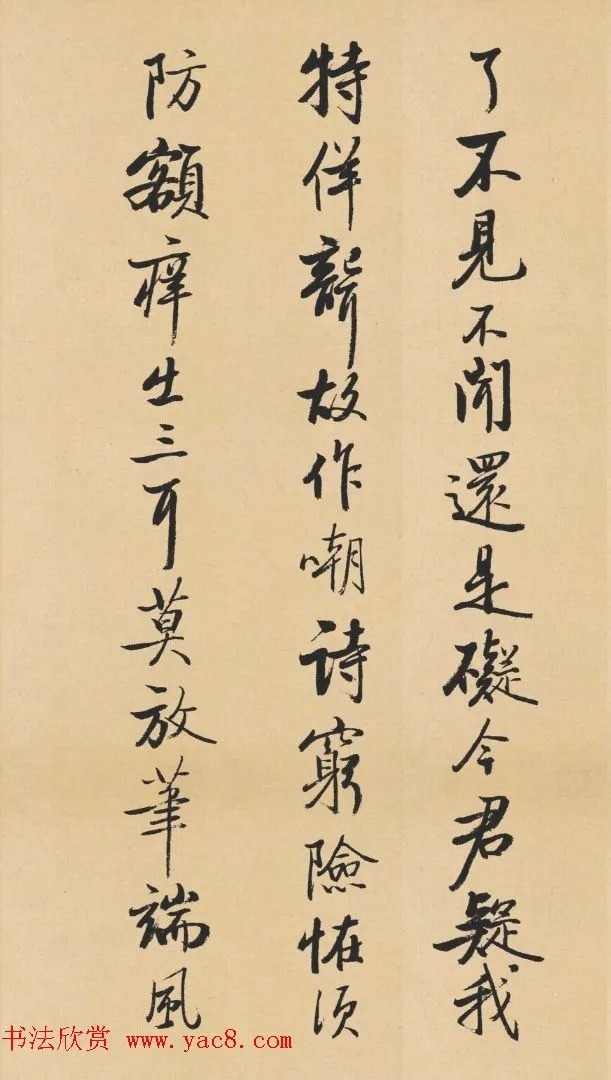 了不見不聞還是礙今君疑我
特佯聾故作嘲詩窮險怪須
防額癢出三耳莫放筆端風
书法欣赏 www.yac8.com